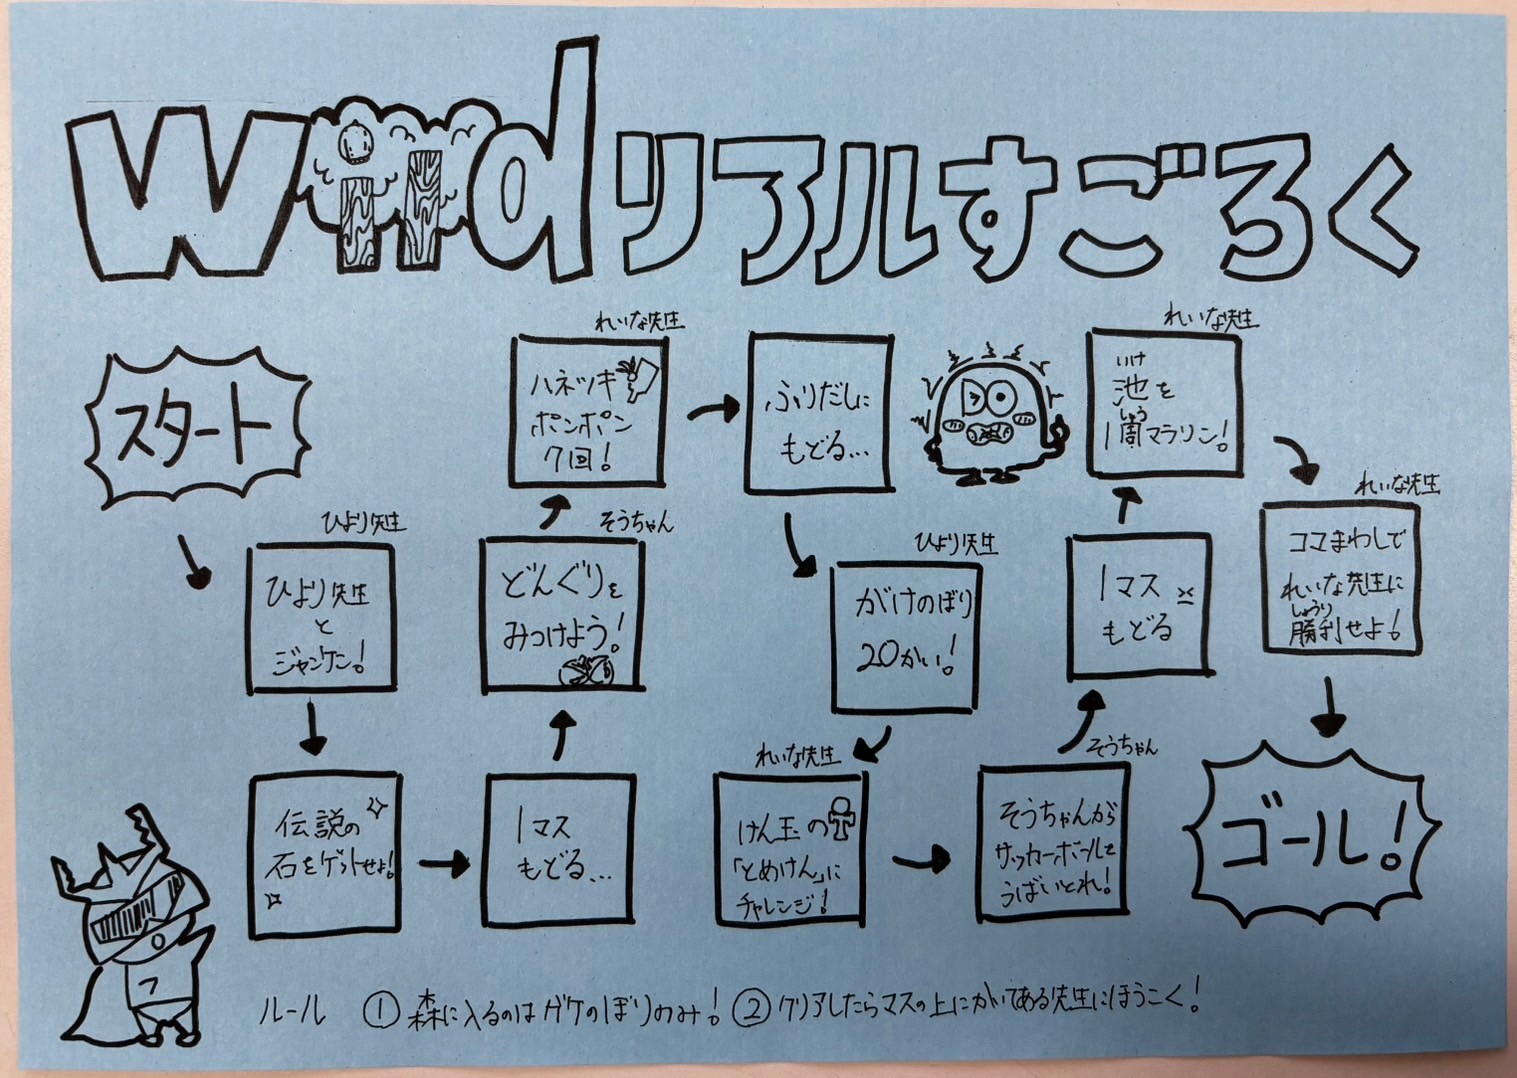 wood リアルすごろく
スタート
ひより先生
ひより先生
と
ジャンケン!
伝説の
石をゲットせよ!
1マス
もどる...
そうちゃん
どんぐりを
みつけよう!
れいな先生
ハネツキ
ポンポン
7回!
ふりだしに
もどる...
ひより先生
がけのぼり
20かい!
れいな先生
けん玉の
「とめけん」に
チャレンジ!
そうちゃん
そうちゃんから
サッカーボールを
うばいとれ!
1マス
もどる
れいな先生
いけ
池を
しゅう
1周マラソン!
れいな先生
コマまわしで
れいな先生に
しょうり
勝利せよ!
ゴール!
ルール ①森に入るのはガケのぼりのみ! ②クリアしたらマスの上にかいてある先生にほうこく!